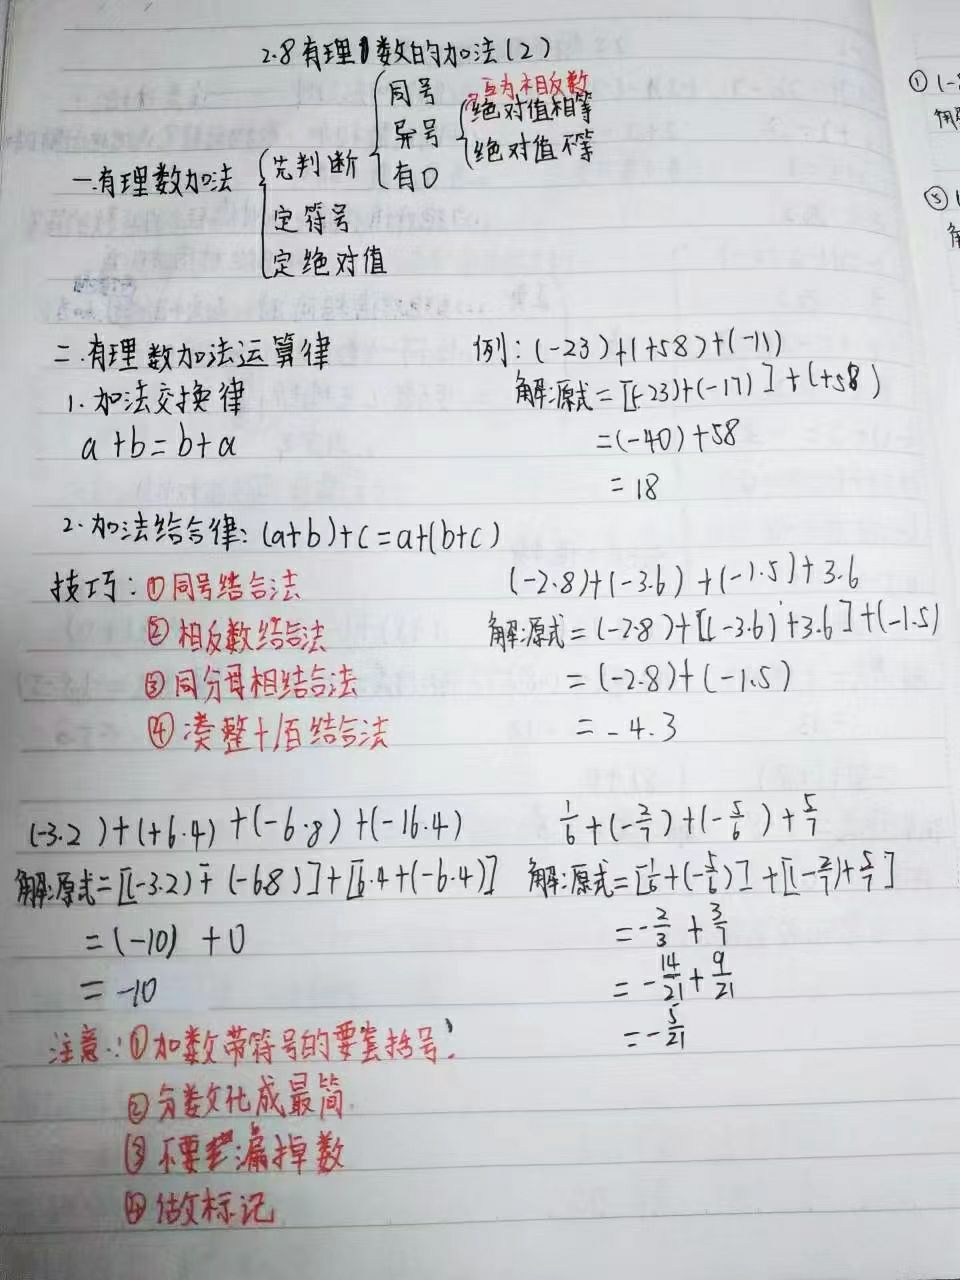 2.8有理数的加法(2)
同号
互为相反数
绝对值相等
异号
绝对值不等
有0
一.有理数加法
先判断
定符号
定绝对值
二.有理数加法运算律
1.加法交换律
a+b=b+a
例:(-23)+(+58)+(-17)
解:原式=[(-23)+(-17)]+(+58)
=(-40)+58
=18
2.加法结合律:(a+b)+c=a+(b+c)
技巧:①同号结合法
②相反数结合法
③同分母相结合法
④凑整十/百结合法
(-2.8)+(-3.6)+(-1.5)+3.6
解:原式=(-2.8)+[(-3.6)+3.6]+(-1.5)
=(-2.8)+(-1.5)
=-4.3
(-3.2)+(+6.4)+(-6.8)+(-16.4)
解:原式=[(-3.2)+(-6.8)]+[6.4+(-6.4)]
=(-10)+0
=-10
1/6+(-2/7)+(-5/6)+5/7
解:原式=[1/6+(-5/6)]+[(-2/7)+5/7]
=-2/3+3/7
=-14/21+9/21
=-5/21
注意:①加数带符号的要套括号!
②分数化成最简.
③不要漏掉数
④做标记
①
⑤